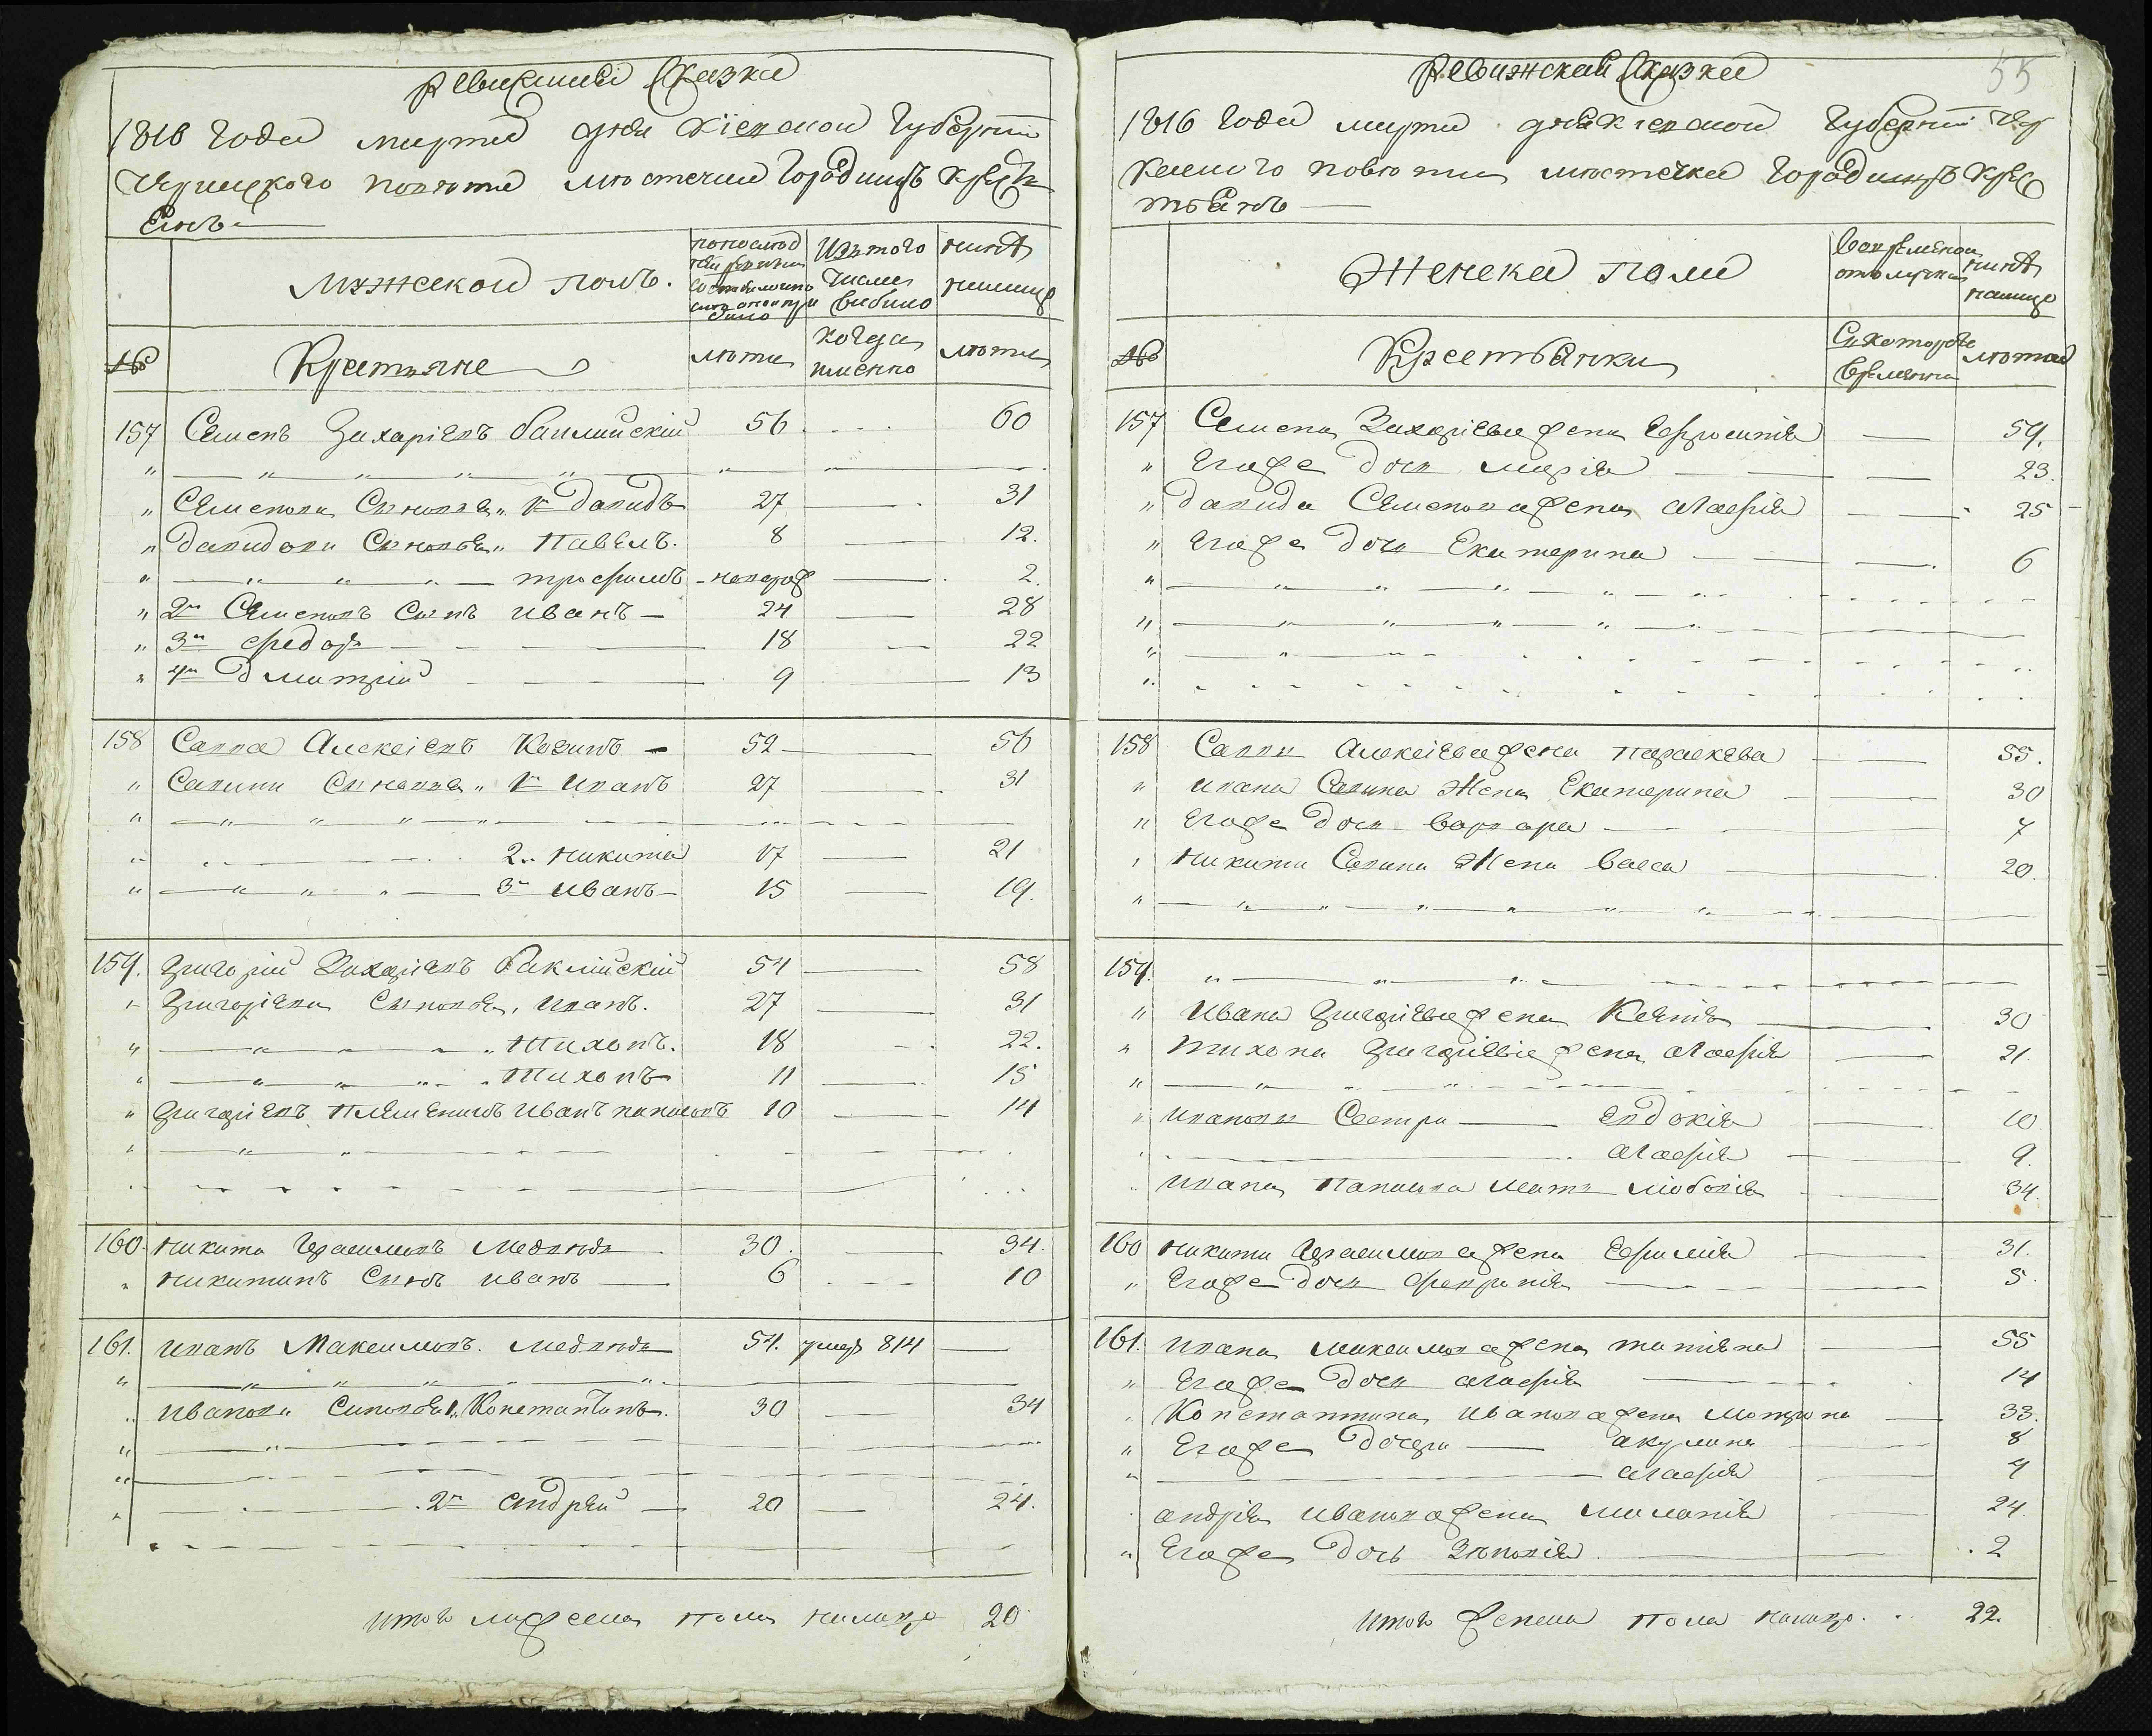 Сказки
1816 года марта дня Кіевской Губерніи
Черкаского повѣта мѣстечка Городища Крестъ
янъ
мужской полъ.
Изъ того числа выбыло
нынѣ налицо
№
Крестьяне
лѣта
когда именно
лѣта
157 Семенъ Захаріевъ 56 60
Семеновы Сыновья 1й Давидъ 27 31
Давидовы Сыновья Павелъ. 8 12.
трофимъ новорож 2.
2й Семеновъ Сынъ Иванъ 24 28
3й федоръ 18 22
4й Дмитрій 9 13
158 Савва Алексіевъ 52 56
Савины Сыновья 1й Иванъ 27 31
2. Никита 17 21
3й Иванъ 15 19.
159. Григорій Захаріевъ 54 58
Григоріевы Сыновья, Иванъ. 27 31
Тихонъ. 18 22.
Тихонъ 11 15
Григоріевъ Племеникъ Иванъ 10 14
160. Никита Герасимовъ Медвѣдь 30. 34.
Никитинъ Сынъ Иванъ 6 10
161. Иванъ Максимовъ. Медвѣдь 54. умеръ 814
Ивановы Сыновья 1. Константинъ. 30 34
2й Андрей 20 24.
Итого пола налицо 20
55
Ревижская Сказка
1816 года марта дня Кіевской Губерніи Чер
каского повѣта мѣстечка Городища Крес
тьянъ
Женска пола
нынѣ налицо
№
Крестьянки
Съ котораго времени
лѣта
157 Семена Захаріева жена Ефросинія 59.
Егоже дочь Марія 23.
Давида Семенова жена Агафія 25
Егоже дочь Екатерина 6
158 Саввы Алексіева жена Параскева 55.
Ивана Савина Жена Екатерина 30
Егоже дочь Варвара 7
Никиты Савина Жена Васса 20.
159.
Ивана Григоріева жена Ксенія 30
Тихона Григоріева жена Агафія 21.
Ивановы Сестры Евдокія 10
Агафія 9.
Ивана мать 34.
160 Никиты Герасимова жена Ефимія 31.
Егоже дочь 5.
161. Ивана Максимова жена Татіяна 55
Егоже дочь Агафія 14
Константина Иванова жена Мотрона 33.
Егоже дочери Акулина 8
Агафія 4
Андрія Иванова жена Миланія 24
Егоже дочь Зѣновія 2
Итого женска пола налицо. 22.